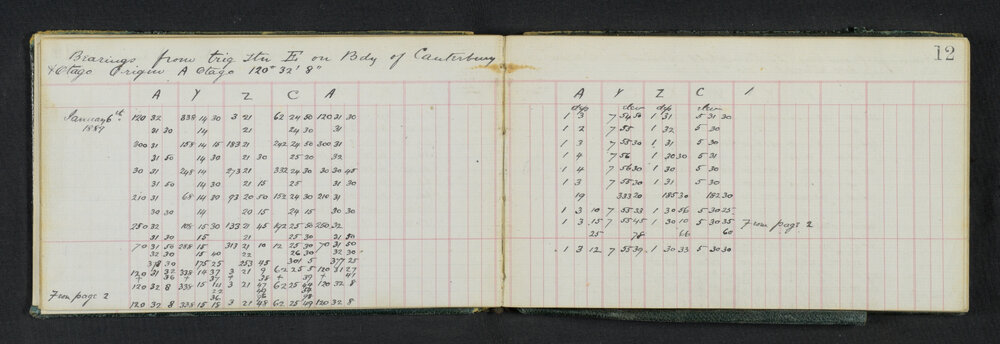 Bearings from trig Stn E on Bdy of Canterbury
& Otago Origin A Otago 120° 32' 8"
12
A Y Z C A
January 6th 1887
120 32 338 14 30 3 21 62 24 50 120 31 30
31 30 14 21 24 30 31
300 31 158 14 15 183 21 242 24 50 300 31
31 50 14 30 21 30 25 20 32
30 31 248 14 273 21 332 24 30 30 30 45
31 50 14 30 21 15 25 31 30
210 31 68 14 30 93 20 50 152 24 30 210 31
30 30 14 20 15 24 15 30 30
250 32 108 15 30 133 21 45 192 25 50 250 32
31 30 15 21 25 30 31 50
70 31 50 288 15 313 21 10 12 25 30 70 31 50
32 30 15 40 22 26 30 32 30
378 30 175 25 253 45 301 5 377 25
120 31 32 338 14 37 3 21 9 62 25 5 120 31 27
120 32 8 338 15 3 21 47 62 25 44 120 32 8
From page 2
120 32 8 338 15 18 3 21 48 62 25 49 120 32 8
A Y Z C
dep dew dep dew
1 3 7 54 50 1 31 5 31 30
1 2 7 55 1 32 5 30
1 3 7 55 30 1 31 5 30
1 4 7 56 1 30 30 5 31
1 4 7 56 30 1 30 5 30
1 3 7 55 30 1 31 5 30
19 333 20 185 30 182 30
1 3 10 7 55 33 1 30 56 5 30 25
1 3 15 7 55 45 1 30 10 5 30 35 From page 2
25 78 66 60
1 3 12 7 55 39 1 30 33 5 30 30